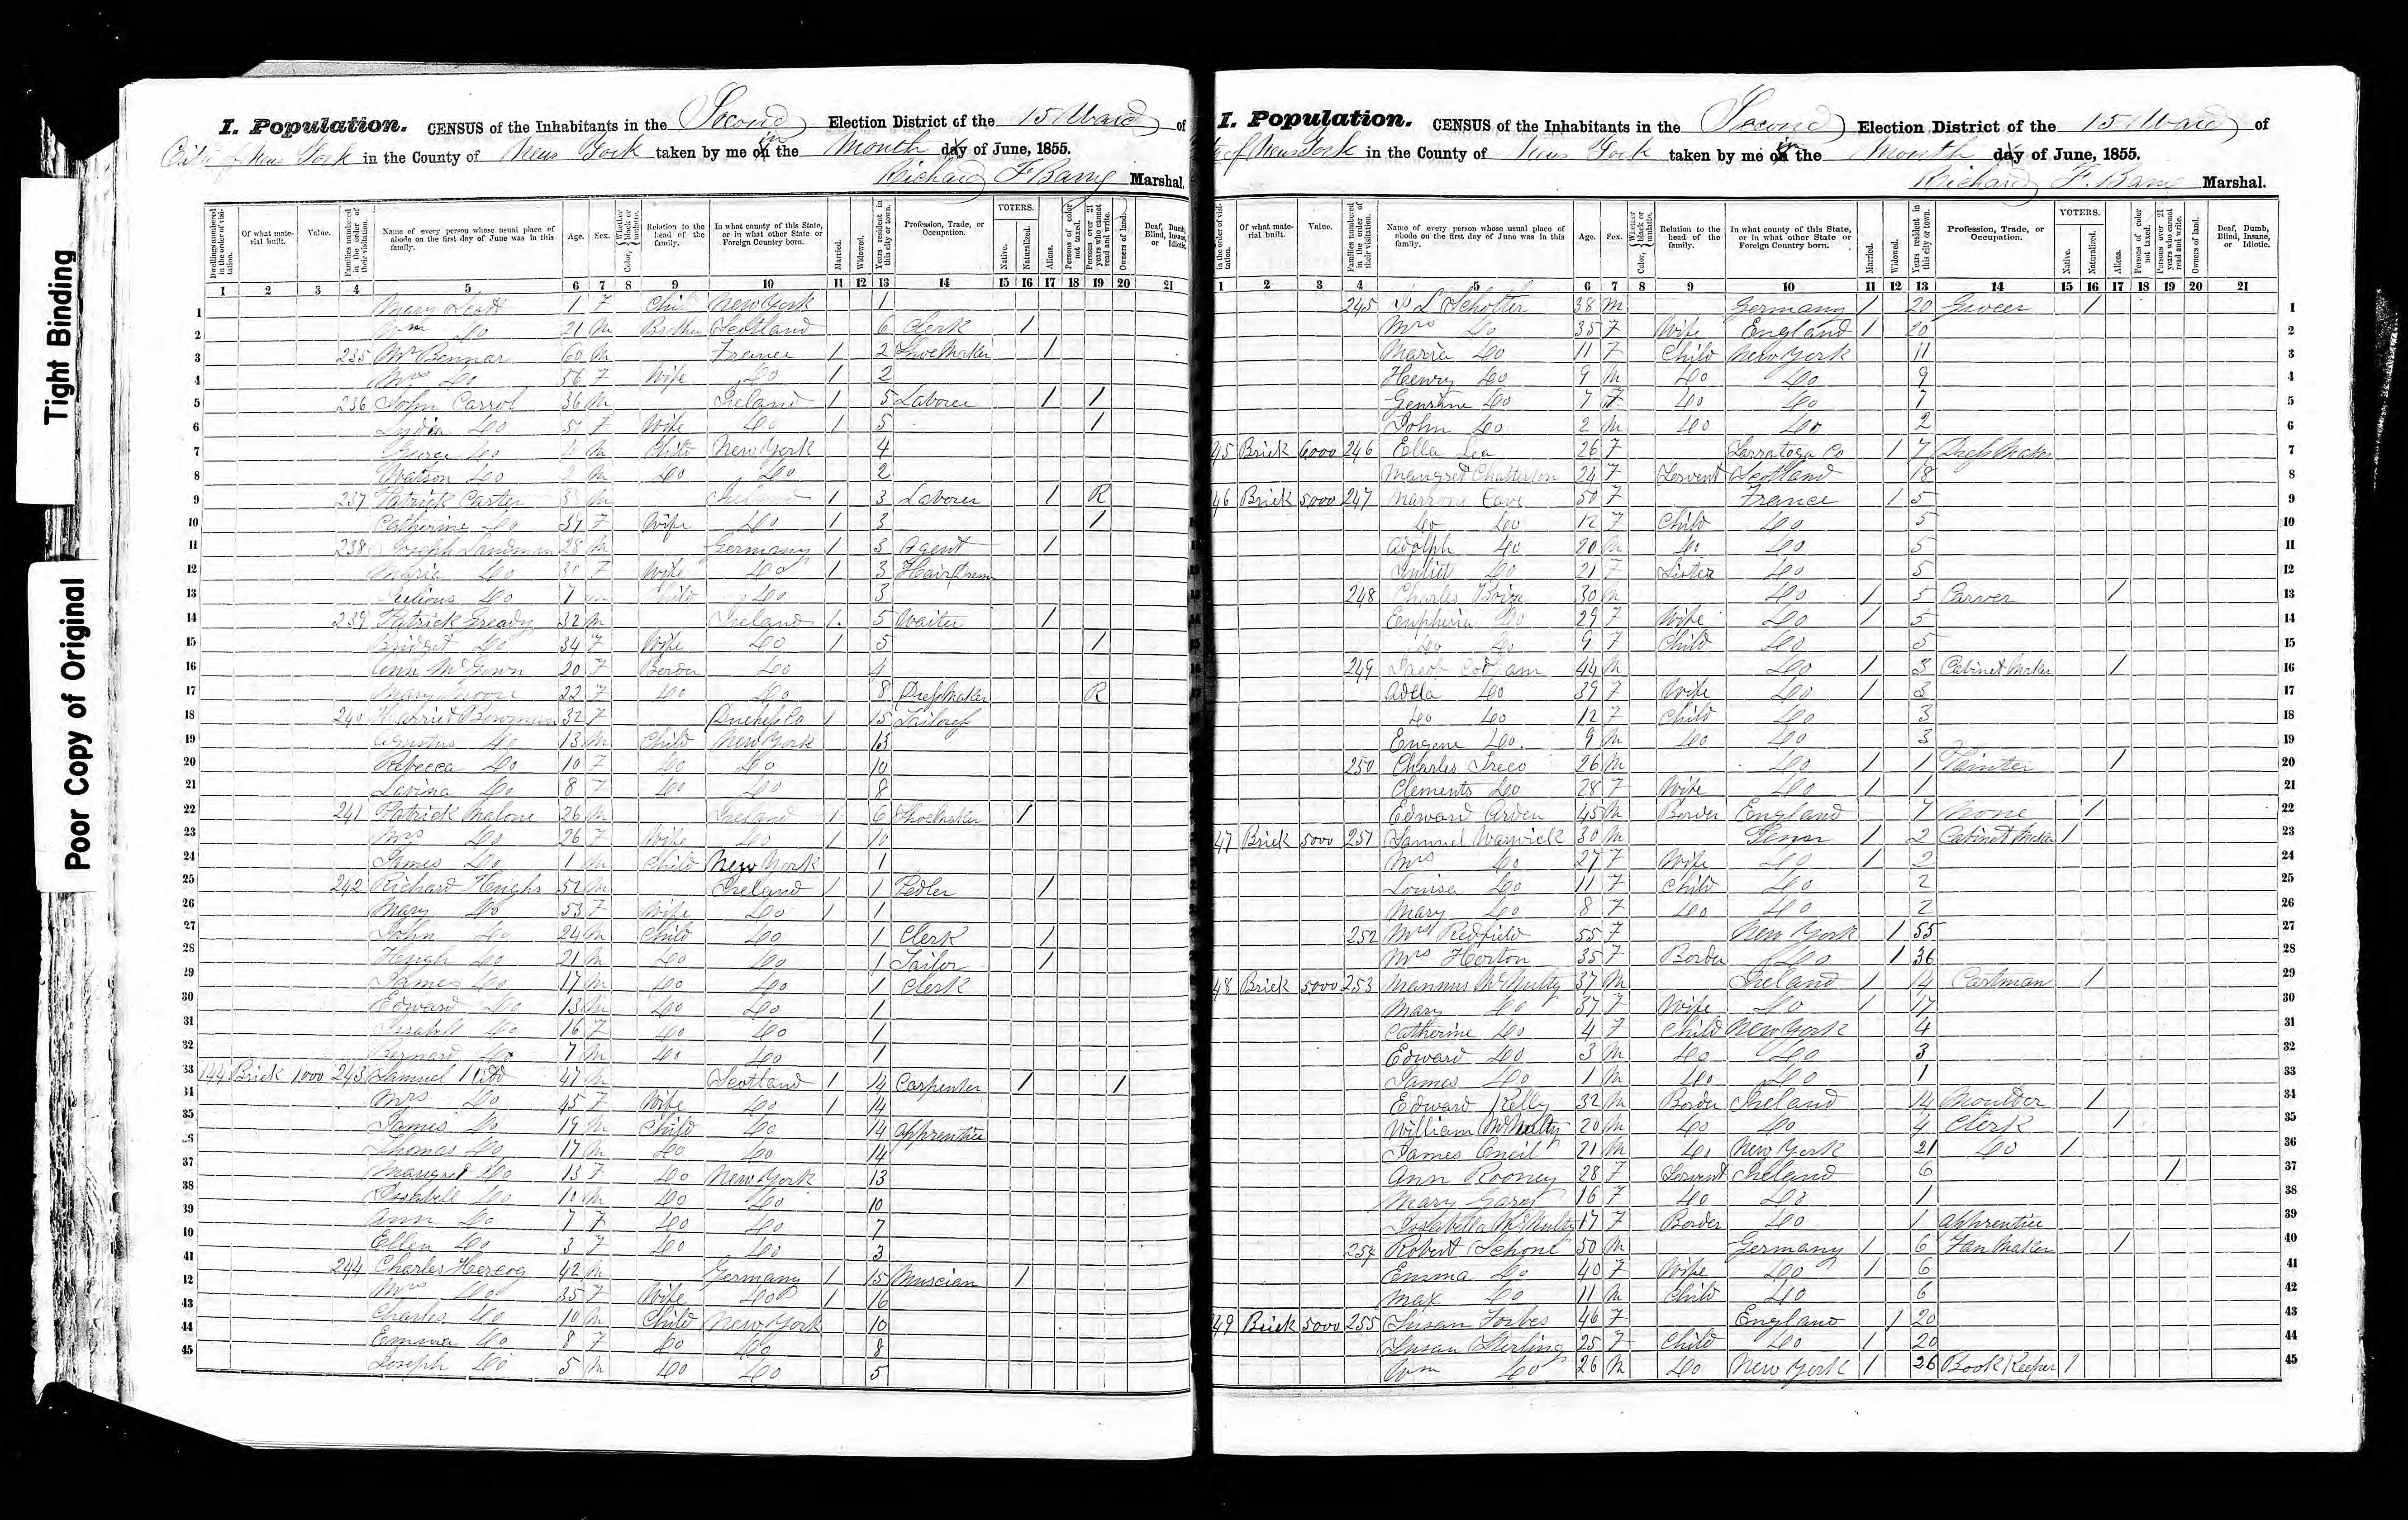 Tight Binding
Poor Copy of Original
I. Population. CENSUS of the Inhabitants in the Second Election District of the 15 Ward of
City of New York in the County of New York taken by me in the Month day of June, 1855.
Richard F Barry Marshal.
Dwellings numbered in the order of visitation. Of what material built. Value. Families numbered in the order of their visitation. Name of every person whose usual place of abode on the first day of June was in this family. Age. Sex. Color, Whether black or mulatto. Relation to the head of the family. In what county of this State, or in what other State or Foreign Country born. Married. Widowed. Years resident in this city or town. Profession, Trade, or Occupation. VOTERS. Native. Naturalized. Aliens. Persons of color not taxed. Persons over 21 years who cannot read and write. Owners of land. Deaf, Dumb, Blind, Insane, or Idiotic.
1 2 3 4 5 6 7 8 9 10 11 12 13 14 15 16 17 18 19 20 21
1 Mary 1 F Child New York 1
2 Wm Do 21 M Brother Scotland 6 Clerk /
3 235 Mr Bennar 60 M France / 2 Shoe Maker /
4 Mrs Do 56 F Wife Do / 2
5 236 John Carrol 36 M Ireland / 5 Laborer / /
6 Lydia Do F Wife Do / 5 /
7 Do M Child New York 4
8 Watson Do 2 M Do Do 2
9 237 Patrick Carter M Ireland / 3 Laborer / R
10 Catherine Do 37 F Wife Do / 3 /
11 238 Joseph Landman 28 M Germany / 3 Agent /
12 Maria Do 30 F Wife Do / 3 Hair Dresser
13 Julious Do 7 M Child Do 3
14 239 Patrick Gready 32 M Ireland / 5 Waiter /
15 Bridget Do 34 F Wife Do / 5 /
16 Ann McGown 20 F Border Do 4
17 Mary Moore 22 F Do Do 8 Dress Maker R
18 240 Harriet Bowman 32 F Duchess Co / 15 Tailoress
19 Agustus Do 13 M Child New York 13
20 Rebecca Do 10 F Do Do 10
21 Lavina Do 8 F Do Do 8
22 241 Patrick Malone 26 M Ireland / 6 Shoe Maker /
23 Mrs Do 26 F Wife Do / 10
24 James Do 1 M Child New York 1
25 242 Richard Heughs 52 M Ireland / 1 Pedler /
26 Mary Do 53 F Wife Do / 1
27 John Do 24 M Child Do 1 Clerk /
28 Heugh Do 21 M Do Do 1 Tailor /
29 James Do 17 M Do Do 1 Clerk
30 Edward Do 13 M Do Do 1
31 Issabell Do 16 F Do Do 1
32 Bernard Do 7 M Do Do 1
33 144 Brick 1000 243 Samuel Kidd 47 M Scotland / 14 Carpenter / /
Mrs Do 45 F Wife Do / 14
35 James Do 19 M Child Do 14 Apprentice
Thomas Do 17 M Do Do 14
37 Margret Do 13 F Do New York 13
38 Issabell Do 10 M Do Do 10
39 Ann Do 7 F Do Do 7
Ellen Do 3 F Do Do 3
41 244 Charles Hercog 42 M Germany / 15 Muscian /
Mrs Do 35 F Wife Do / 16
43 Charles Do 10 M Child New York 10
44 Emma Do 8 F Do Do 8
45 Joseph Do 5 M Do Do 5
I. Population. CENSUS of the Inhabitants in the Second Election District of the 15 Ward of
of New York in the County of New York taken by me in the Month day of June, 1855.
Richard F. Barry Marshal.
in the order of visitation. Of what material built. Value. Families numbered in the order of their visitation. Name of every person whose usual place of abode on the first day of June was in this family. Age. Sex. Color, Whether black or mulatto. Relation to the head of the family. In what county of this State, or in what other State or Foreign Country born. Married. Widowed. Years resident in this city or town. Profession, Trade, or Occupation. VOTERS. Native. Naturalized. Aliens. Persons of color not taxed. Persons over 21 years who cannot read and write. Owners of land. Deaf, Dumb, Blind, Insane, or Idiotic.
1 2 3 4 5 6 7 8 9 10 11 12 13 14 15 16 17 18 19 20 21
245 L Scholter 38 M Germany / 20 Grocer / 1
Mrs Do 35 F Wife England / 20 2
Maria Do 11 F Child New York 11 3
Henry Do 9 M Do Do 9 4
Genrine Do 7 F Do Do 7 5
John Do 2 M Do Do 2 6
45 Brick 6000 246 Ella Lea 26 F Sarratoga Co / 7 Dress Maker 7
Margret Chatterton 24 F Servent Scotland 18 8
46 Brick 5000 247 Cave 50 F France / 5 9
Do Do 12 F Child Do 5 10
Adolph Do 20 M Do Do 5 11
Do 21 F Sister Do 5 12
248 Charles 30 M Do / 5 Carver / 13
Euphenia Do 29 F Wife Do / 5 14
Do Do 9 F Child Do 5 15
249 Jacob 44 M Do / 3 Cabinet Maker / 16
Adela Do 39 F Wife Do / 3 17
Do Do 12 F Child Do 3 18
Eugene Do 9 M Do Do 3 19
250 Charles Treco 26 M Do / 1 Painter / 20
Clements Do 28 F Wife Do / 1 21
Edward Arden 45 M Border England 7 None / 22
47 Brick 5000 251 Samuel Warwick 30 M / 2 Cabinet Maker / 23
Mrs Do 27 F Wife Do / 2 24
Louisa Do 11 F Child Do 2 25
Mary Do 8 F Do Do 2 26
252 Mrs Redfield 55 F New York / 55 27
Mrs Horton 35 F Border Do / 36 28
48 Brick 5000 253 Mannus McNulty 37 M Ireland / 14 Cartman / 29
Mary Do 37 F Wife Do / 17 30
Catherine Do 4 F Child New York 4 31
Edward Do 3 M Do Do 3 32
James Do 1 M Do Do 1 33
Edward Kelly 32 M Border Ireland 14 Moulder / 34
William McNulty 20 M Do Do 4 Clerk / 35
James Oneil 21 M Do New York 21 Do / 36
Ann Rooney 28 F Servent Ireland 6 / 37
Mary 16 F Do Do 1 38
Issabella McNulty 17 F Border Do 1 Apprentice 39
254 Robert Schonl 50 M Germany / 6 Fan Maker / 40
Emma Do 40 F Wife Do / 6 41
Max Do 11 M Child Do 6 42
49 Brick 5000 255 Susan Forbes 46 F England / 20 43
Susan Sterling 25 F Child Do / 20 44
Wm Do 26 M Do New York / 26 Book Keeper / 45